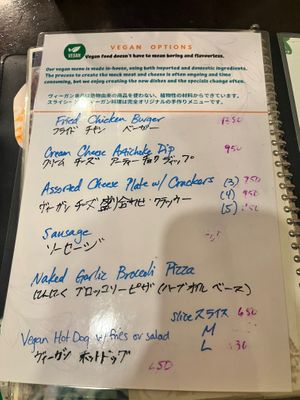 VEGAN OPTIONS
VEGAN
Vegan food doesn't have to mean boring and flavourless.
Our vegan menu is made in-house, using both imported and domestic ingredients.
The process to create the mock meat and cheese is often ongoing and time
consuming, but we enjoy creating new dishes and the specials change often.
ヴィーガン食品は動物由来の商品を使わない、植物性の材料からできています。
スライシーのヴィーガン料理は完全オリジナルの手作りメニューです。
Fried Chicken Burger 1350
フライド チキン バーガー
Cream Cheese Artichoke Dip 950
クリム チーズ アーティーチョク ディップ
Assorted Cheese Plate w/ Crackers (3) 750
ヴィーガン チーズ 盛り合わせ・クラッカー (4) 950
(5)
Sausage
ソーセージ
Naked Garlic Broccoli Pizza
にんにく ブロッコリーピザ (ハーブオイル ベース)
Slice スライス 650
M
Vegan Hot Dog w/ fries or salad L
ヴィーガン ホットドッグ